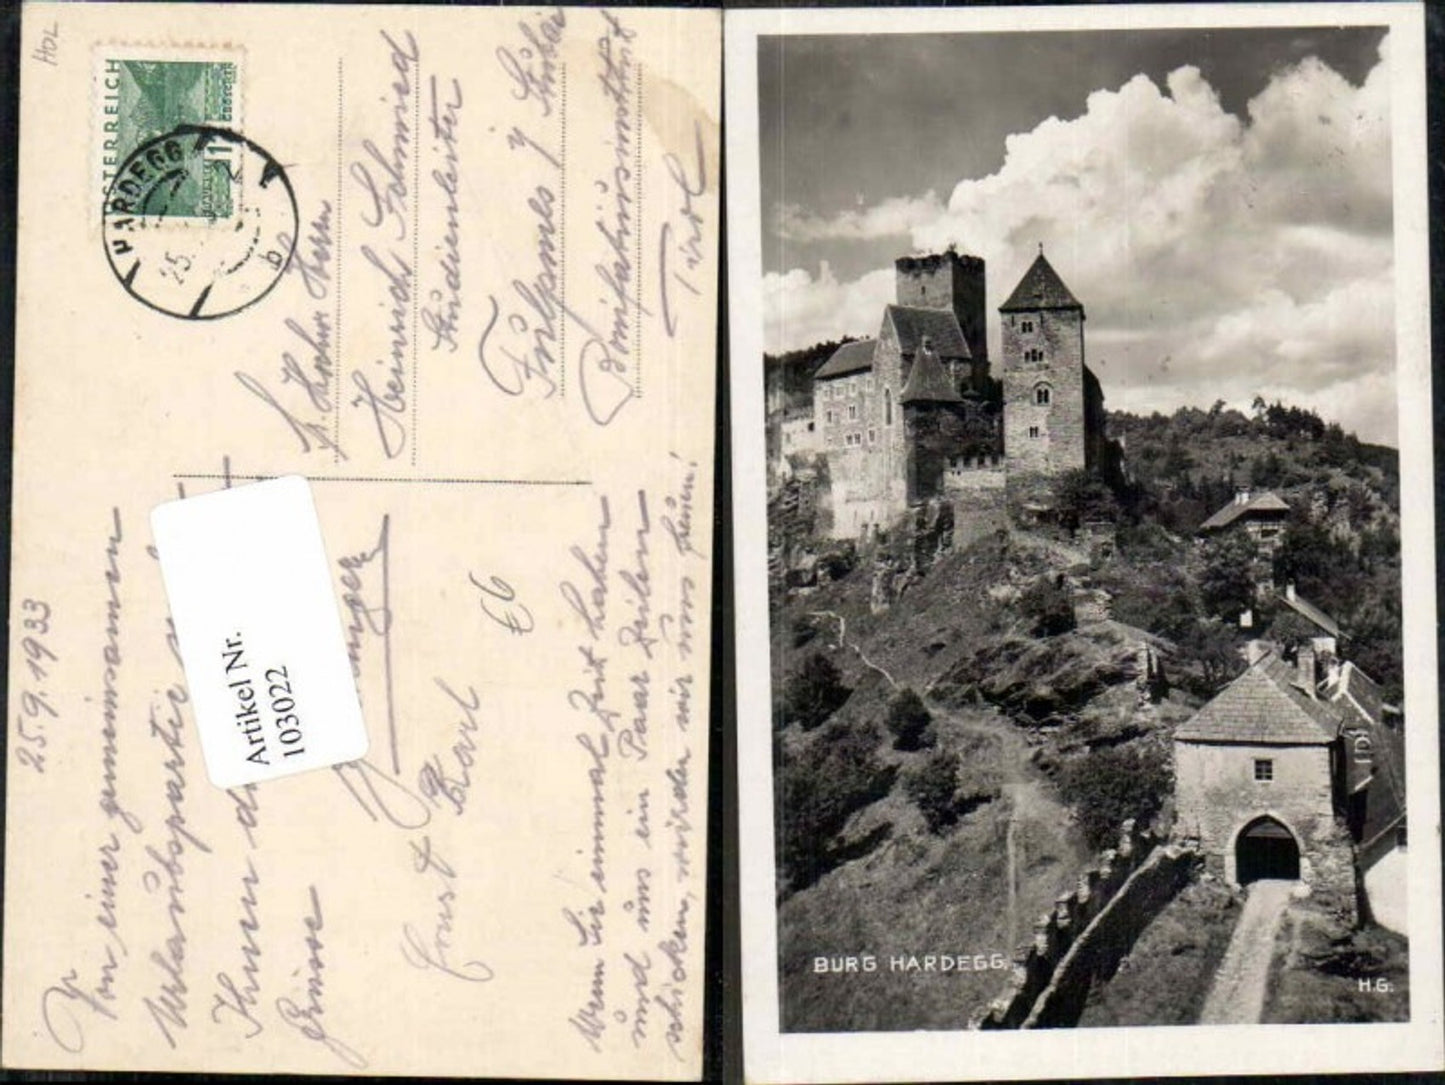 HOL
ÖSTERREICH
12
HARDEGG
25.
b
25.9.1933
Von einer gemeinsamen
Urlaubspartie
Ihnen di
Grüsse
Ernst
Karl
€6
Artikel Nr.
103022
Wenn Sie einmal Zeit haben
und uns ein Paar Zeilen
schicken, würden wir uns freuen!
Herrn
Heinrich Schmied
Studienleiter
Fulpmes
Tirol
BURG HARDEGG.
H.G.